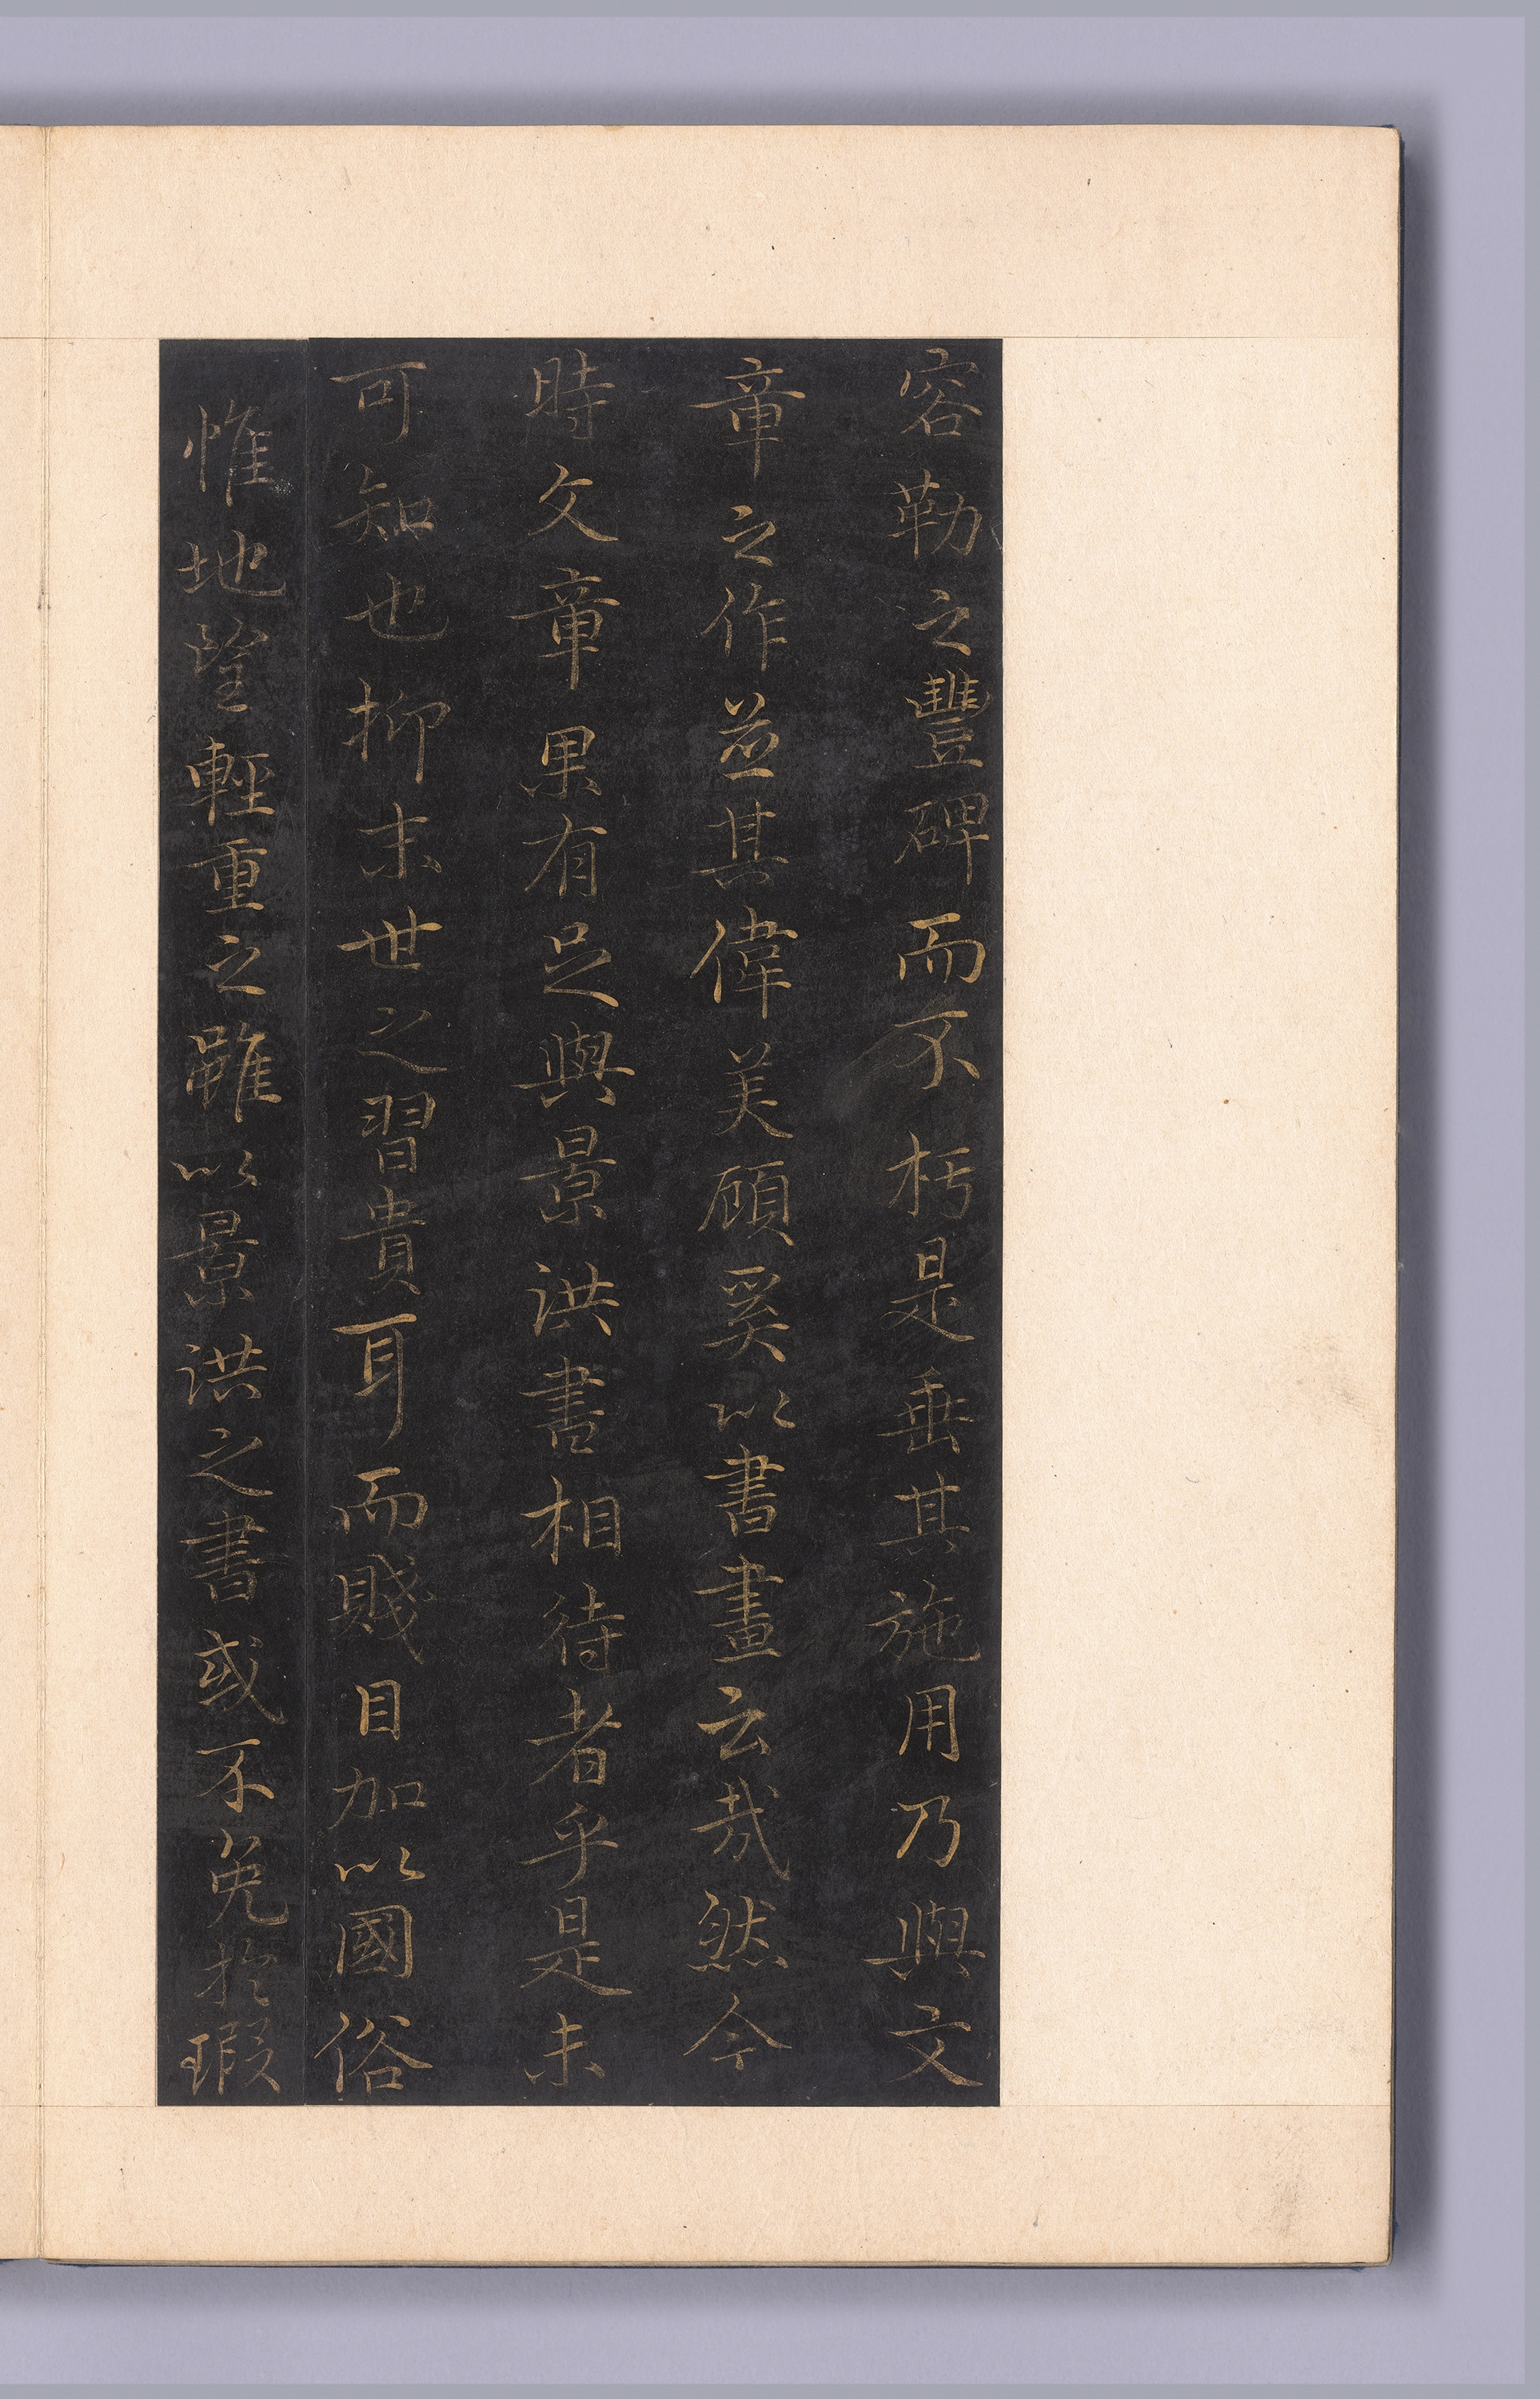 容勒之豐碑而不朽是垂其施用乃與文
章之作並其偉美顧奚以書畫云哉然今
時文章果有足與景洪書相待者乎是未
可知也抑末世之習貴耳而賤目加以國俗
惟地望輕重之雖以景洪之書或不免於瑕